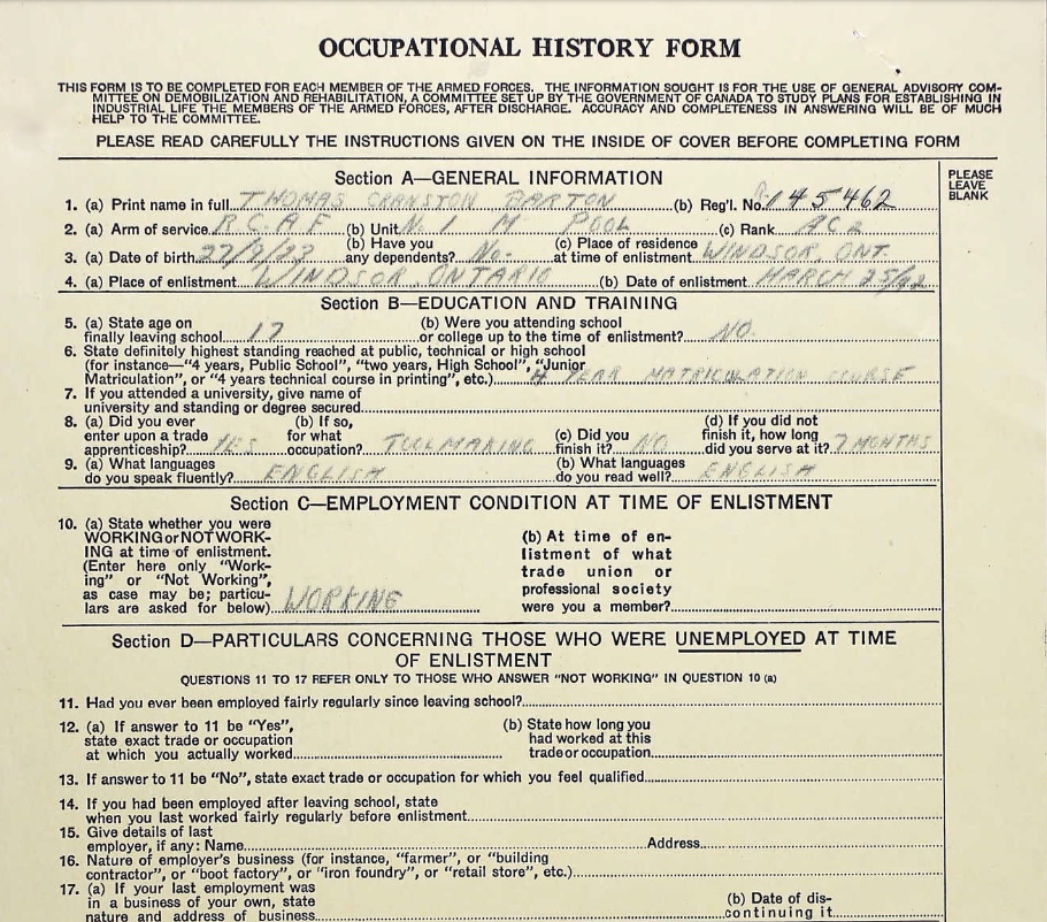 OCCUPATIONAL HISTORY FORM
THIS FORM IS TO BE COMPLETED FOR EACH MEMBER OF THE ARMED FORCES. THE INFORMATION SOUGHT IS FOR THE USE OF GENERAL ADVISORY COM-
MITTEE ON DEMOBILIZATION AND REHABILITATION, A COMMITTEE SET UP BY THE GOVERNMENT OF CANADA TO STUDY PLANS FOR ESTABLISHING IN
INDUSTRIAL LIFE THE MEMBERS OF THE ARMED FORCES, AFTER DISCHARGE. ACCURACY AND COMPLETENESS IN ANSWERING WILL BE OF MUCH
HELP TO THE COMMITTEE.
PLEASE READ CAREFULLY THE INSTRUCTIONS GIVEN ON THE INSIDE OF COVER BEFORE COMPLETING FORM
PLEASE
LEAVE
BLANK
Section A—GENERAL INFORMATION
1. (a) Print name in full THOMAS CRANSTON BARTON (b) Reg'l. No. R145462
2. (a) Arm of service R.C.A.F (b) Unit No. 1 M POOL (c) Rank AC2
3. (a) Date of birth (b) Have you any dependents? No- (c) Place of residence at time of enlistment WINDSOR, ONT.
4. (a) Place of enlistment WINDSOR, ONTARIO (b) Date of enlistment MARCH 25/42
Section B—EDUCATION AND TRAINING
5. (a) State age on finally leaving school 17 (b) Were you attending school or college up to the time of enlistment? NO.
6. State definitely highest standing reached at public, technical or high school
(for instance—"4 years, Public School", "two years, High School", "Junior
Matriculation", or "4 years technical course in printing", etc.) 4 YEAR MATRICULATION COURSE
7. If you attended a university, give name of
university and standing or degree secured
8. (a) Did you ever enter upon a trade apprenticeship? YES (b) If so, for what occupation? TOOLMAKING (c) Did you finish it? NO (d) If you did not finish it, how long did you serve at it? 7 MONTHS
9. (a) What languages do you speak fluently? ENGLISH (b) What languages do you read well? ENGLISH
Section C—EMPLOYMENT CONDITION AT TIME OF ENLISTMENT
10. (a) State whether you were
WORKING or NOT WORK-
ING at time of enlistment.
(Enter here only "Work-
ing" or "Not Working",
as case may be; particu-
lars are asked for below) WORKING
(b) At time of en-
listment of what
trade union or
professional society
were you a member?
Section D—PARTICULARS CONCERNING THOSE WHO WERE UNEMPLOYED AT TIME
OF ENLISTMENT
QUESTIONS 11 TO 17 REFER ONLY TO THOSE WHO ANSWER "NOT WORKING" IN QUESTION 10 (a)
11. Had you ever been employed fairly regularly since leaving school?
12. (a) If answer to 11 be "Yes",
state exact trade or occupation
at which you actually worked
(b) State how long you
had worked at this
trade or occupation
13. If answer to 11 be "No", state exact trade or occupation for which you feel qualified
14. If you had been employed after leaving school, state
when you last worked fairly regularly before enlistment
15. Give details of last
employer, if any: Name Address
16. Nature of employer's business (for instance, "farmer", or "building
contractor", or "boot factory", or "iron foundry", or "retail store", etc.)
17. (a) If your last employment was
in a business of your own, state
nature and address of business
(b) Date of dis-
continuing it